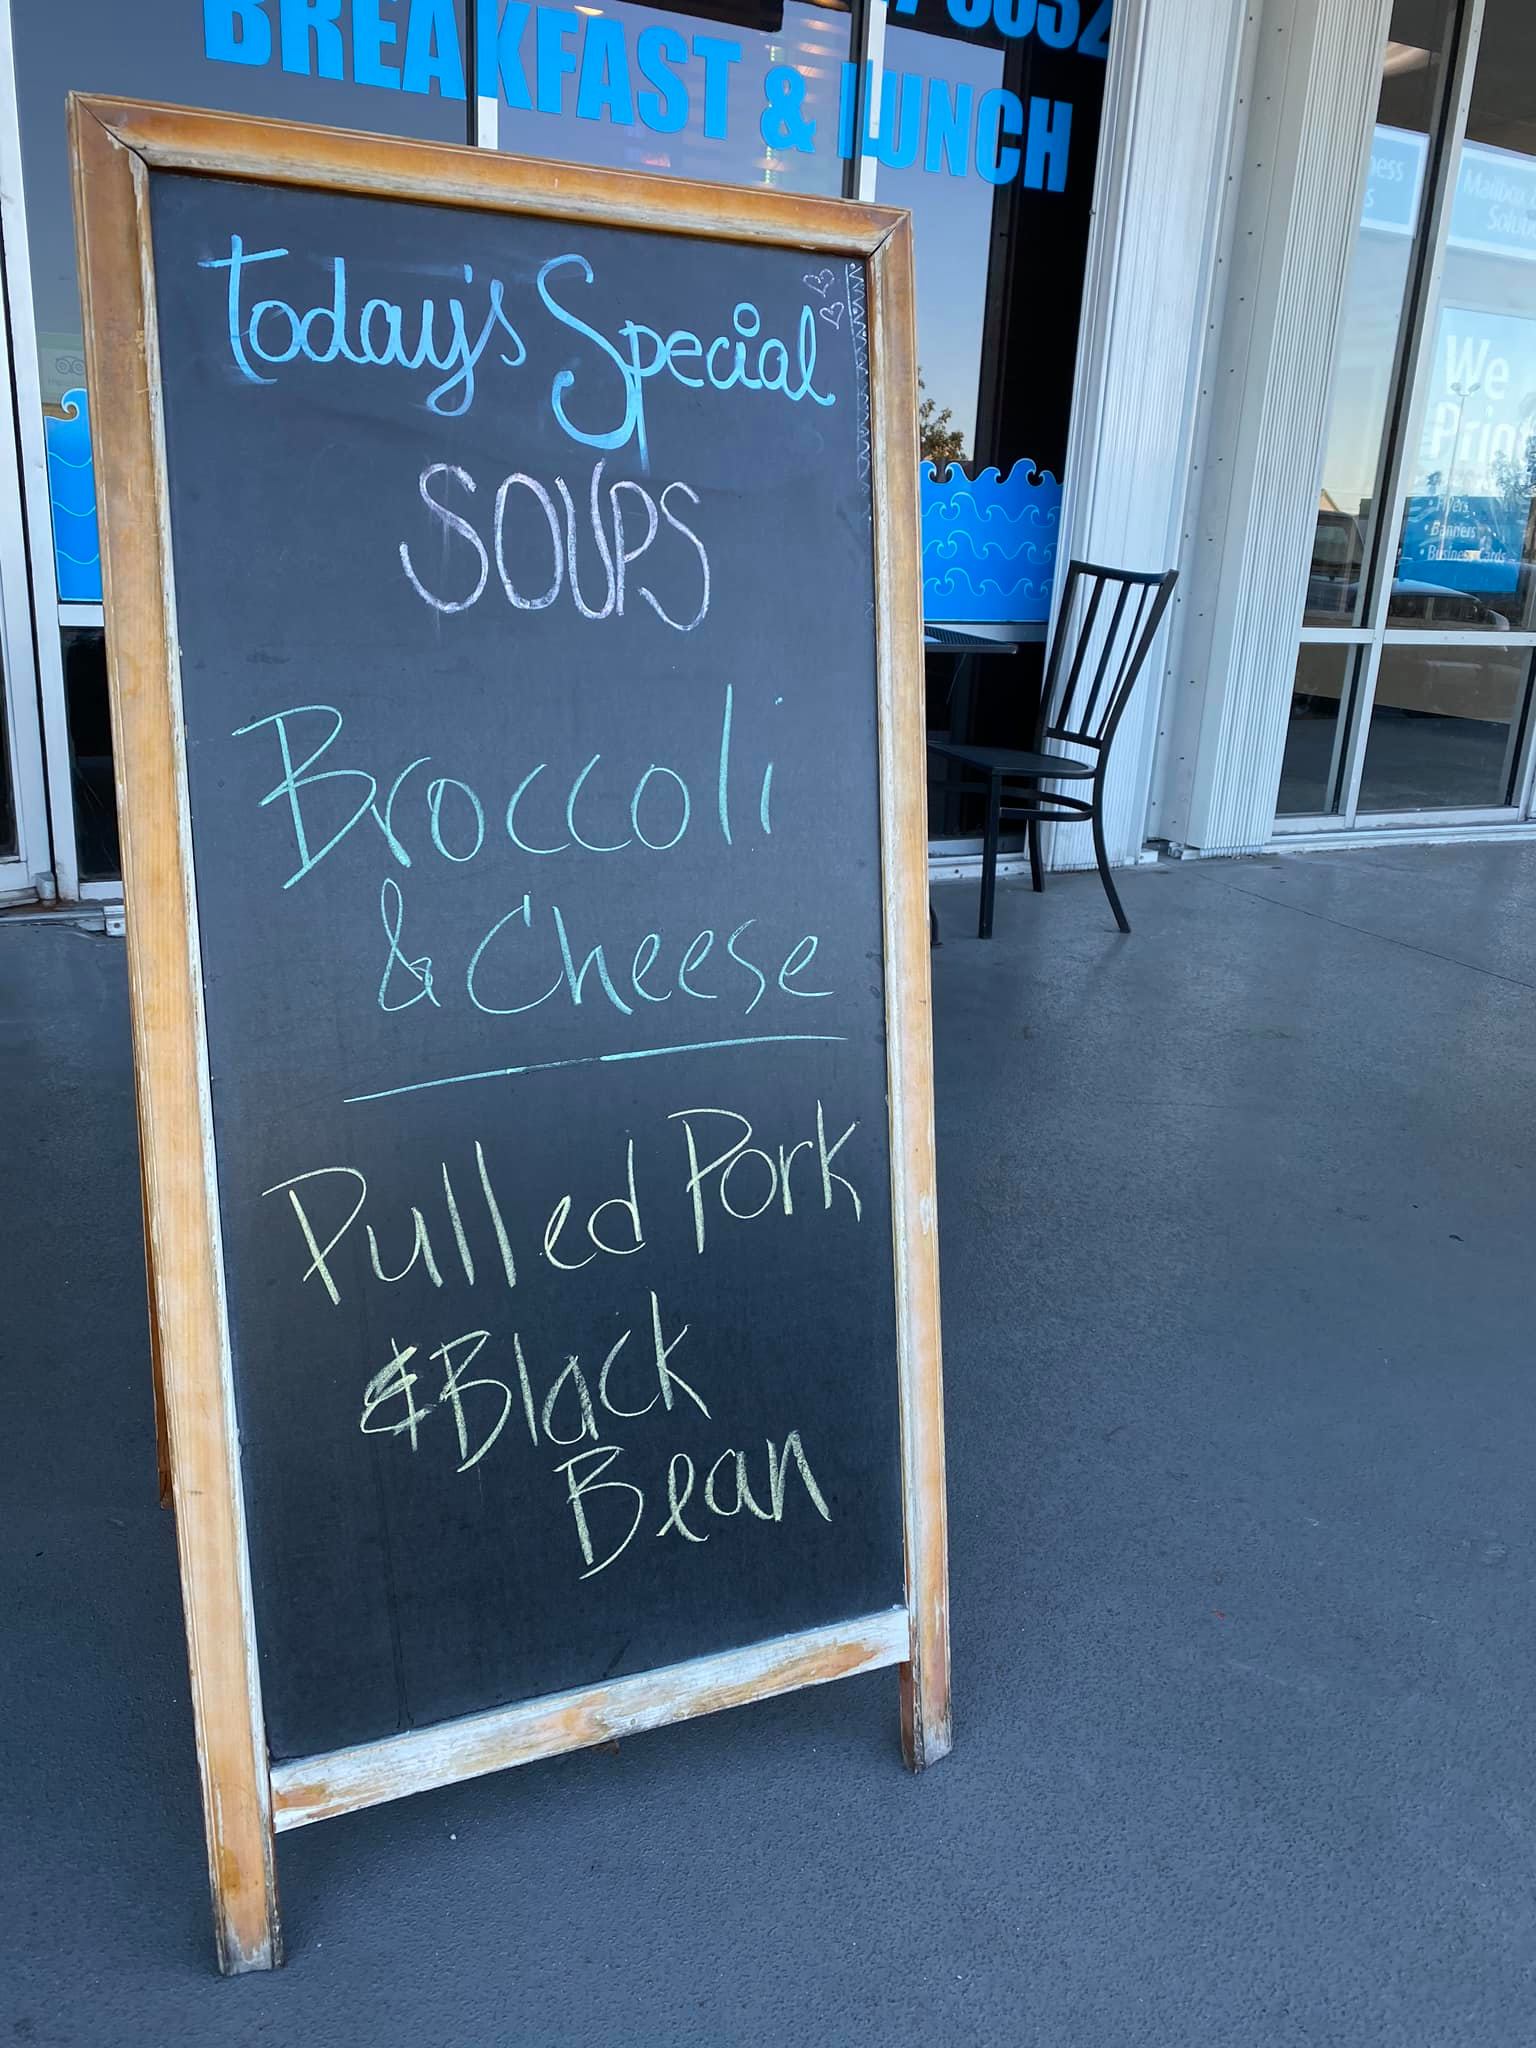 BREAKFAST & LUNCH
Today's Special
SOUPS
Broccoli
& Cheese
Pulled Pork
& Black
Bean
Mailbox
We
· Flyers
· Banners
· Business Cards